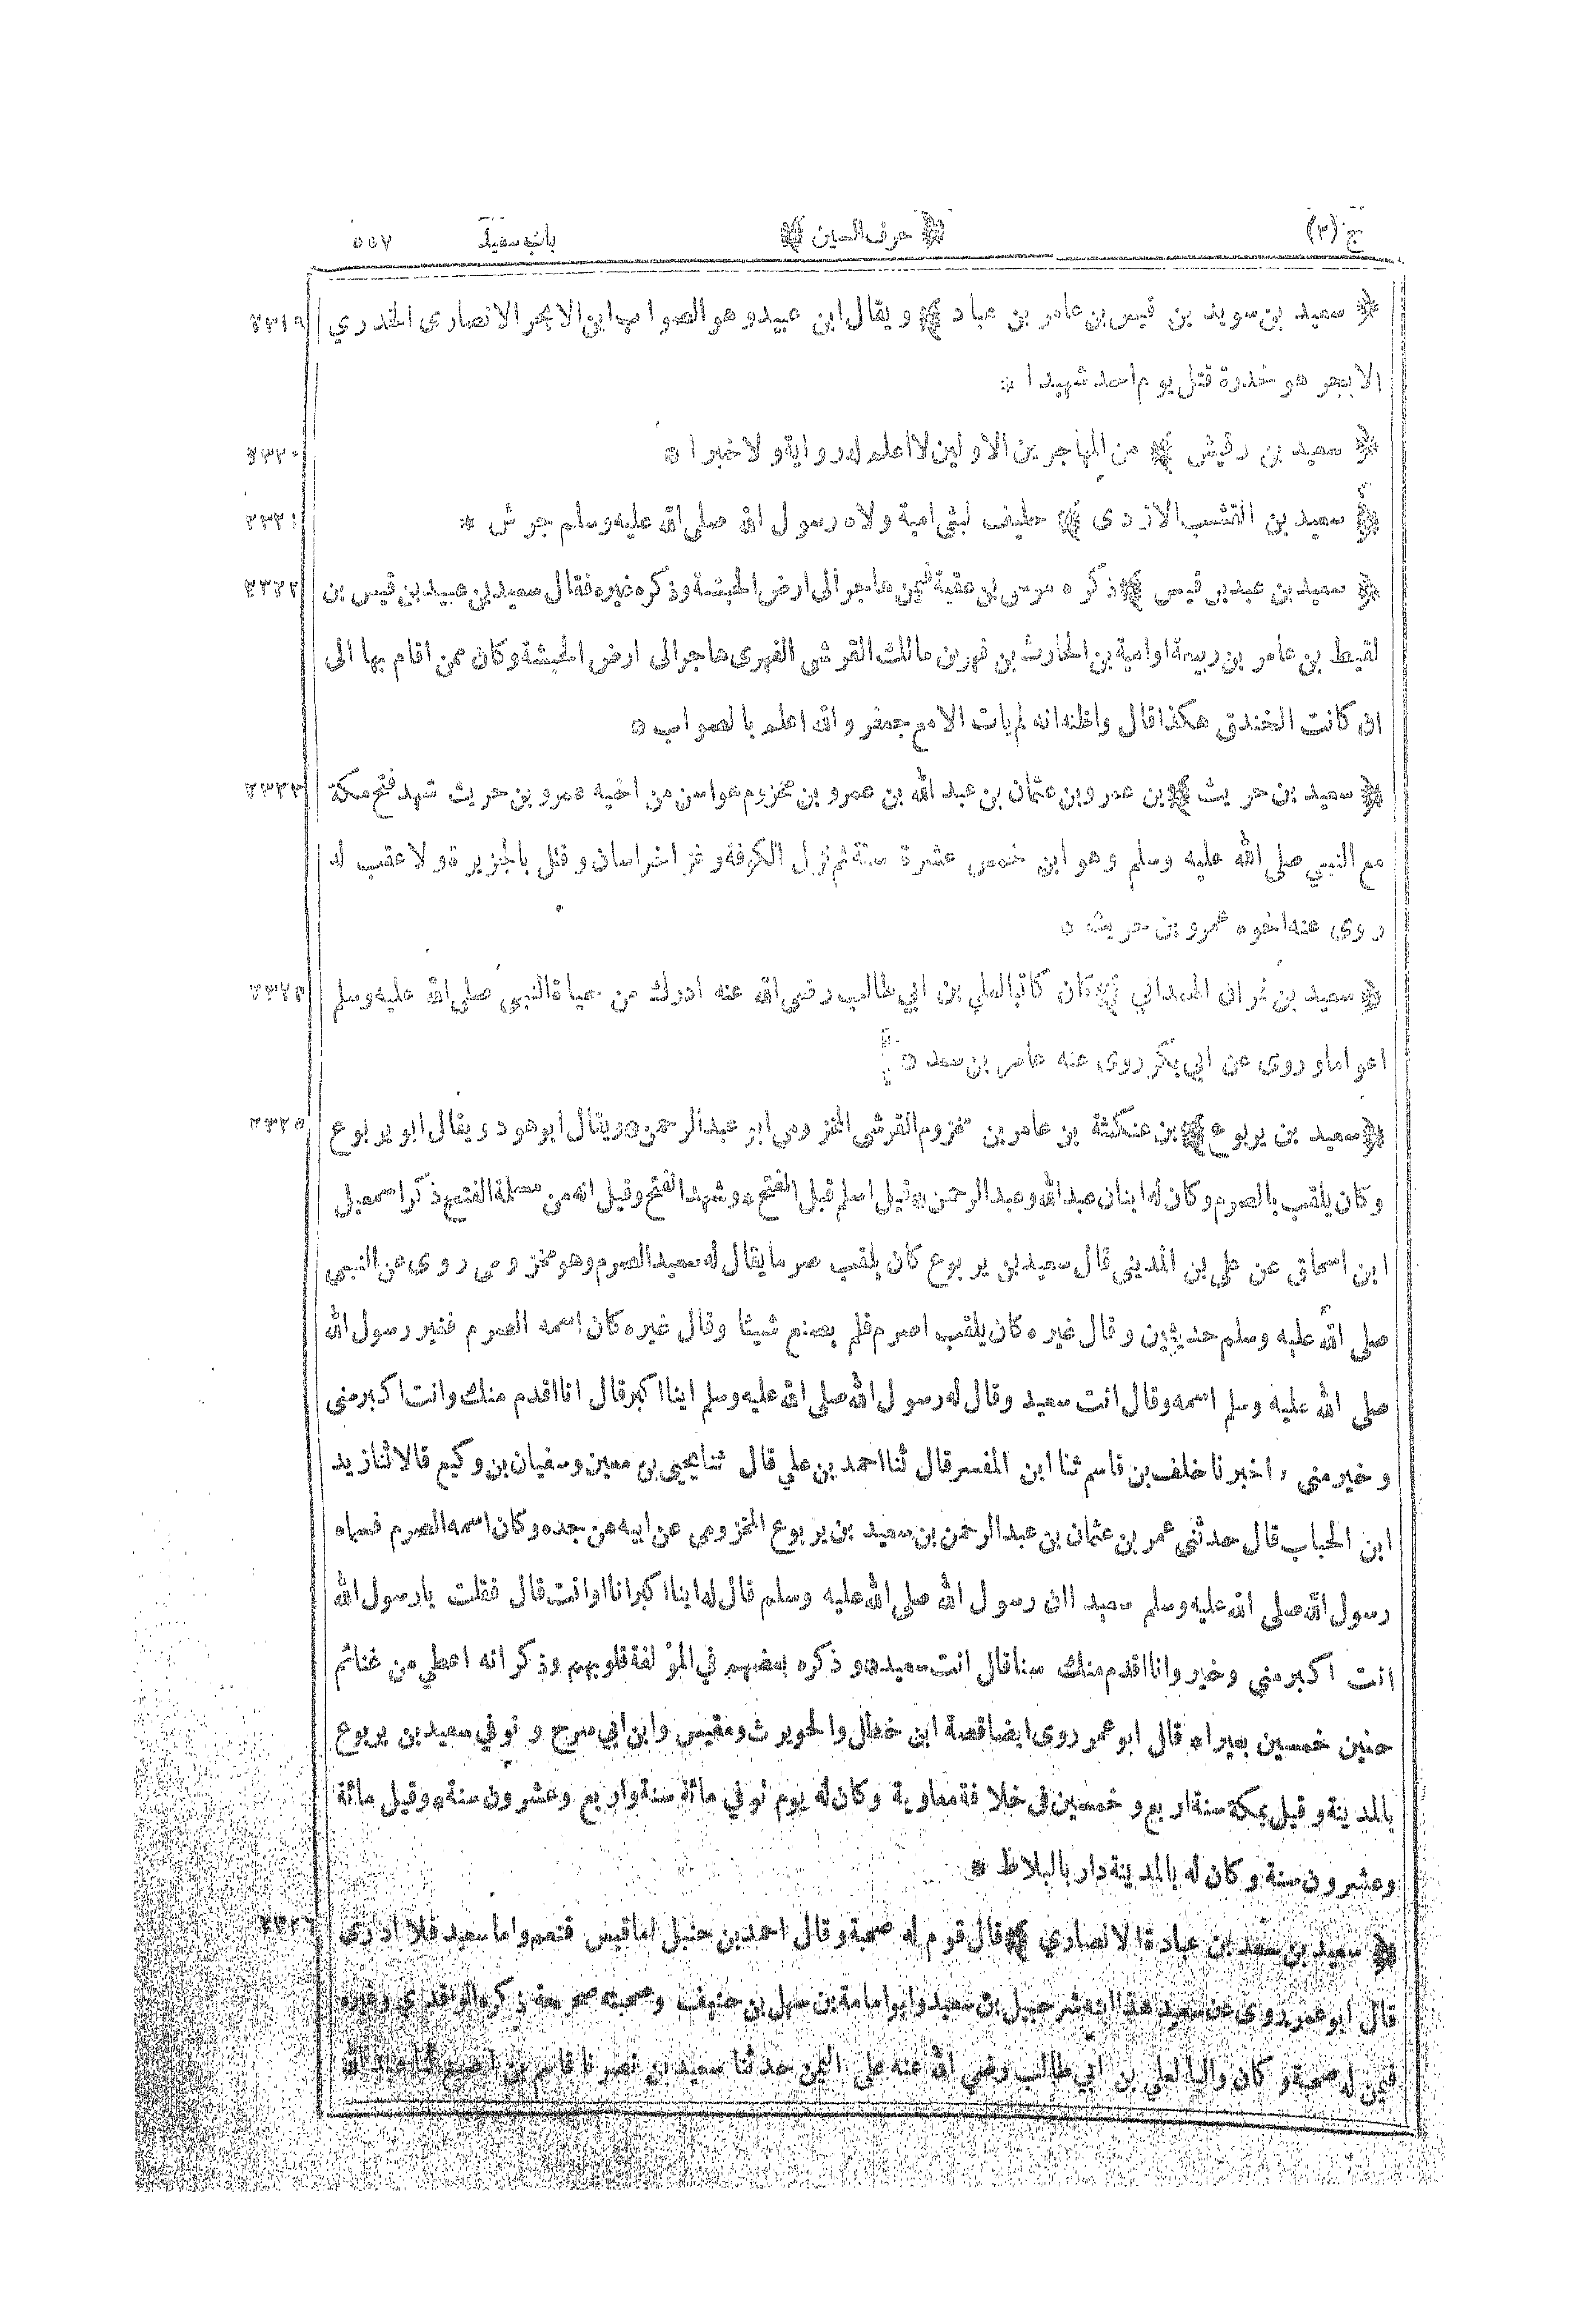 ج (٢) ﴿ حرف السين ﴾ باب سعيد ٥٥٧
﴿ سعيد بن سويد بن قيس بن عامر بن عباد ﴾ ويقال ابن عبيد وهو الصواب ابن الابجر الانصارى الخدري ٢٣١٩
الابجر هو خدرة قتل يوم احد شهيدا *
﴿ سعيد بن رقيش ﴾ من المهاجرين الاولين لا اعلم له رواية ولا خبرا * ٢٣٢٠
﴿ سعيد بن القشب الازدى ﴾ حليف لبنى امية ولاه رسول الله صلى الله عليه وسلم جرش * ٢٣٢١
﴿ سعيد بن عبد بن قيس ﴾ ذكره موسى بن عقبة فيمن هاجر الى ارض الحبشة وذكره غيره فقال سعيد بن عبيد بن قيس بن ٢٣٢٢
لقيط بن عامر بن ربيعة او امية بن الحارث بن فهر بن مالك القرشى الفهرى هاجر الى ارض الحبشة وكان ممن اقام بها الى
ان كانت الخندق هكذا قال واظنه انه لم يات الا مع جعفر والله اعلم بالصواب *
﴿ سعيد بن حريث ﴾ بن عمرو بن عثمان بن عبد الله بن عمرو بن مخزوم هو اسن من اخيه عمرو بن حريث شهد فتح مكة ٢٣٢٣
مع النبي صلى الله عليه وسلم وهو ابن خمس عشرة سنة ثم نزل الكوفة وغزا خراسان وقتل بالجزيرة ولا عقب له
روى عنه اخوه عمرو بن حريث *
﴿ سعيد بن نمران الهمداني ﴾ كان كاتبا لعلي بن ابي طالب رضى الله عنه ادرك من حياة النبى صلى الله عليه وسلم ٢٣٢٤
اعواما وروى عن ابي بكر روى عنه عامر بن سعد *
﴿ سعيد بن يربوع ﴾ بن عنكثة بن عامر بن مخزوم القرشى المخزومى ابو عبد الرحمن * ويقال ابو هود ويقال ابو يربوع ٢٣٢٥
وكان يلقب بالصرم وكان له ابنان عبد الله وعبد الرحمن * قيل اسلم قبل الفتح * وشهد الفتح وقيل انه من مسلمة الفتح ذكر اسمعيل
ابن اسحاق عن على بن المدينى قال سعيد بن يربوع كان يلقب صرما يقال له سعيد الصرم وهو مخزومى روى عن النبي
صلى الله عليه وسلم حديثين وقال غيره كان يلقب اصرم فلم يصنع شيئا وقال غيره كان اسمه الصرم فغير رسول الله
صلى الله عليه وسلم اسمه وقال انت سعيد وقال له رسول الله صلى الله عليه وسلم اينا اكبر قال انا اقدم منك وانت اكبر منى
وخير منى ، اخبرنا خلف بن قاسم ثنا ابن المفسر قال ثنا احمد بن علي قال ثنا يحيى بن معين وسفيان بن وكيع قالا ثنا زيد
ابن الحباب قال حدثنى عمر بن عثمان بن عبد الرحمن بن سعيد بن يربوع المخزومى عن ابيه عن جده وكان اسمه الصرم فسماه
رسول الله صلى الله عليه وسلم سعيد اان رسول الله صلى الله عليه وسلم قال له اينا اكبر انا او انت قال فقلت يا رسول الله
انت اكبر منى وخير وانا اقدم منك سنا قال انت سعيد * وذكره بعضهم في المؤلفة قلوبهم وذكر انه اعطي من غنائم
حنين خمسين بعيرا * قال ابو عمر روى ايضا قصة ابن خطل والحويرث ومقيس وابن ابي سرح وتوفي سعيد بن يربوع
بالمدينة وقيل بمكة سنة اربع وخمسين فى خلافة معاوية وكان له يوم توفي مائة سنة واربع وعشرون سنة * وقيل مائة
وعشرون سنة وكان له بالمدينة دار بالبلاط *
﴿ سعيد بن سعد بن عبادة الانصاري ﴾ قال قوم له صحبة وقال احمد بن حنبل اما قيس فنعم واما سعيد فلا ادرى ٢٣٢٦
قال ابو عمر روى عن سعيد هذا ابنه شرحبيل بن سعيد وابو امامة بن سهل بن حنيف وصحبته صحيحة ذكره الواقدي وغيره
فيمن له صحبة وكان واليا لعلي بن ابي طالب رضي الله عنه على اليمن حدثنا سعيد بن نصر نا قاسم بن اصبغ ثنا عبد الله